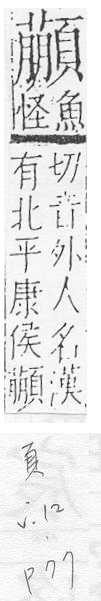 魚
怪
切音外人名漢
有北平康侯
頁 v.12. p77